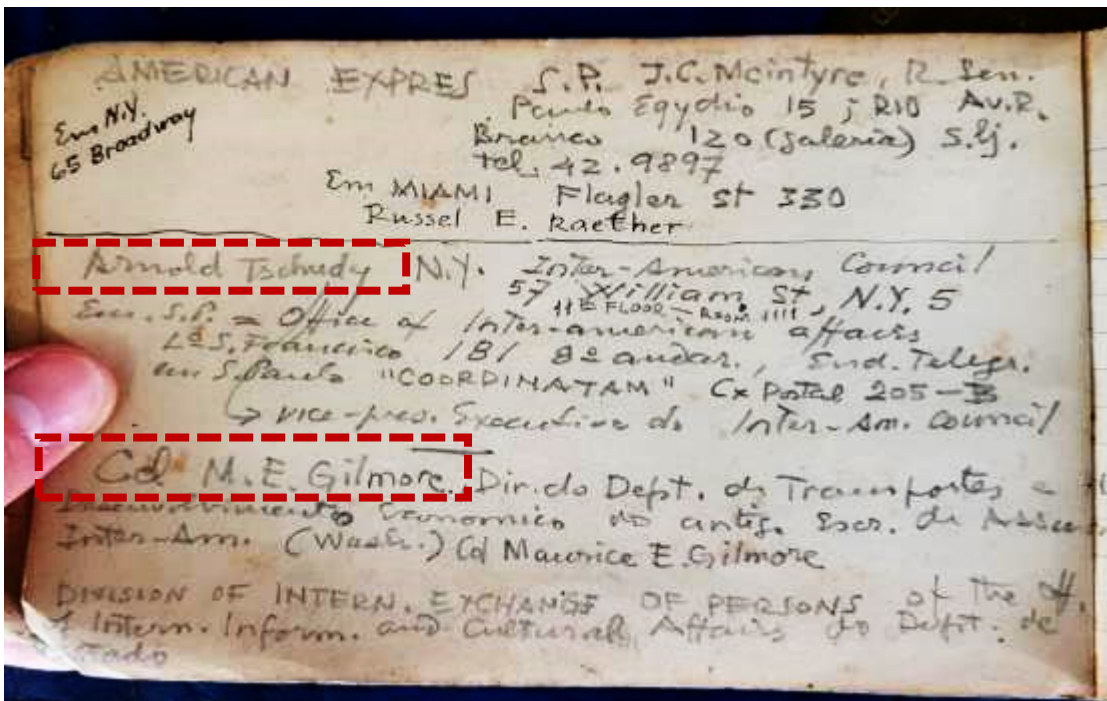 AMERICAN EXPRES S.P. J.C. Mcintyre, R. Sen.
Em N.Y.
65 Broadway
Paulo Egydio 15 ; RIO Av. R.
Branco 120 (Galeria) S. lj.
tel. 42.9897
Em MIAMI Flagler St 330
Russel E. Raether
Arnold Tschudy N.Y. Inter-American Council
57 William St, N.Y. 5
11º FLOOR — ROOM 1111
Em. S.P. = Office of Inter-american affairs
Lº S. Francisco 181 8º andar., End. Telegr.
em S. Paulo "COORDINATAM" Cx Postal 205-B
→ vice-pres. Executive do Inter-Am. Council
Cel M.E. Gilmore. Dir. do Dept. de Transportes e
Desenvolvimento Economico no antig. Escr. de
Inter-Am. (Wash.) Cel Maurice E. Gilmore
DIVISION OF INTERN. EXCHANGE OF PERSONS of the
of Intern. Inform. and Cultural Affairs do Dept. de
Estado